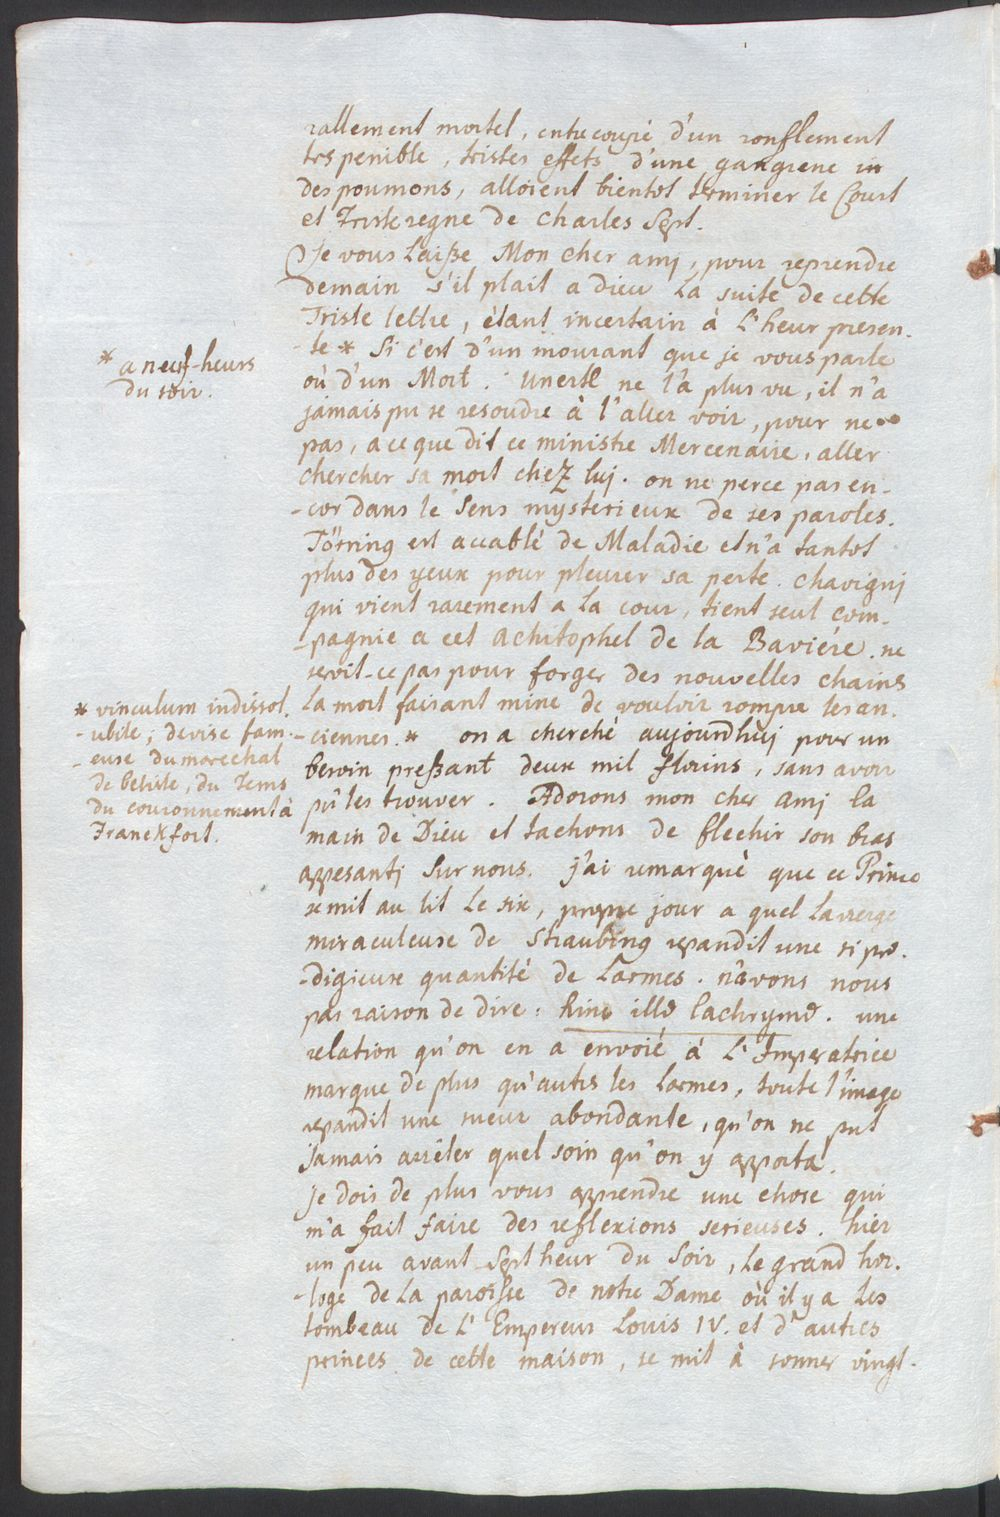 rallement mortel, entrecoupé d'un ronflement
tres penible, tristes effets d'une gangrene in
des poumons, alloient bientot terminer le Court
et Triste regne de Charles Sept.
Je vous laisse Mon cher amj, pour reprendre
demain s'il plait a Dieu la suite de cette
Triste lettre, étant incertain à L'heur presen-
-te * Si c'est d'un mourant que je vous parle
* a neuf-heurs
du soir.
où d'un Mort. Unertl ne l'a plus vu, il n'a
jamais pu se resoudre à l'aller voir, pour ne
pas, a ce que dit ce ministre Mercenaire, aller
chercher sa mort chez luj. on ne perce pas en-
-cor dans le Sens mysterieux de ses paroles.
Törring est accablé de Maladie et n'a tantot
plus des yeux pour pleurer sa perte. Chavignj
qui vient rarement a la cour, tient seul com-
-pagnie a cet Achitophel de la Baviére. ne
seroit-ce pas pour forger des nouvelles chains
la mort faisant mine de vouloir rompre les an-
-ciennes. * on a cherché aujourdhuj pour un
* vinculum indissol-
-ubile, devise fam-
-euse du marechal
de belisle, du Tems
du couronnement à
Franckfort.
besoin pressant deux mil florins, sans avoir
pû les trouver. Adorons mon cher amj la
main de Dieu et tachons de flechir son bras
appesantj Sur nous. j'ai remarqué que ce Prince
se mit au lit le six, propre jour a quel la vierge
miraculeuse de Straubing repandit une si pro-
-digieuse quantité de Larmes. n'avons nous
pas raison de dire: hinc illæ lachrymæ. une
relation qu'on en a envoié à L'Imperatrice
marque de plus qu'autrs les larmes, toute l'image
repandit une sueur abondante, qu'on ne put
jamais arrêter quel soin qu'on y apporta.
Je dois de plus vous apprendre une chose qui
m'a fait faire des reflexions serieuses. hier
un peu avant Sept heur du Soir, le grand hor-
-loge de la paroisse de notre Dame où il y a les
tombeau de L'Empereur Louis IV. et d'autres
princes de cette maison, se mit à sonner vingt-